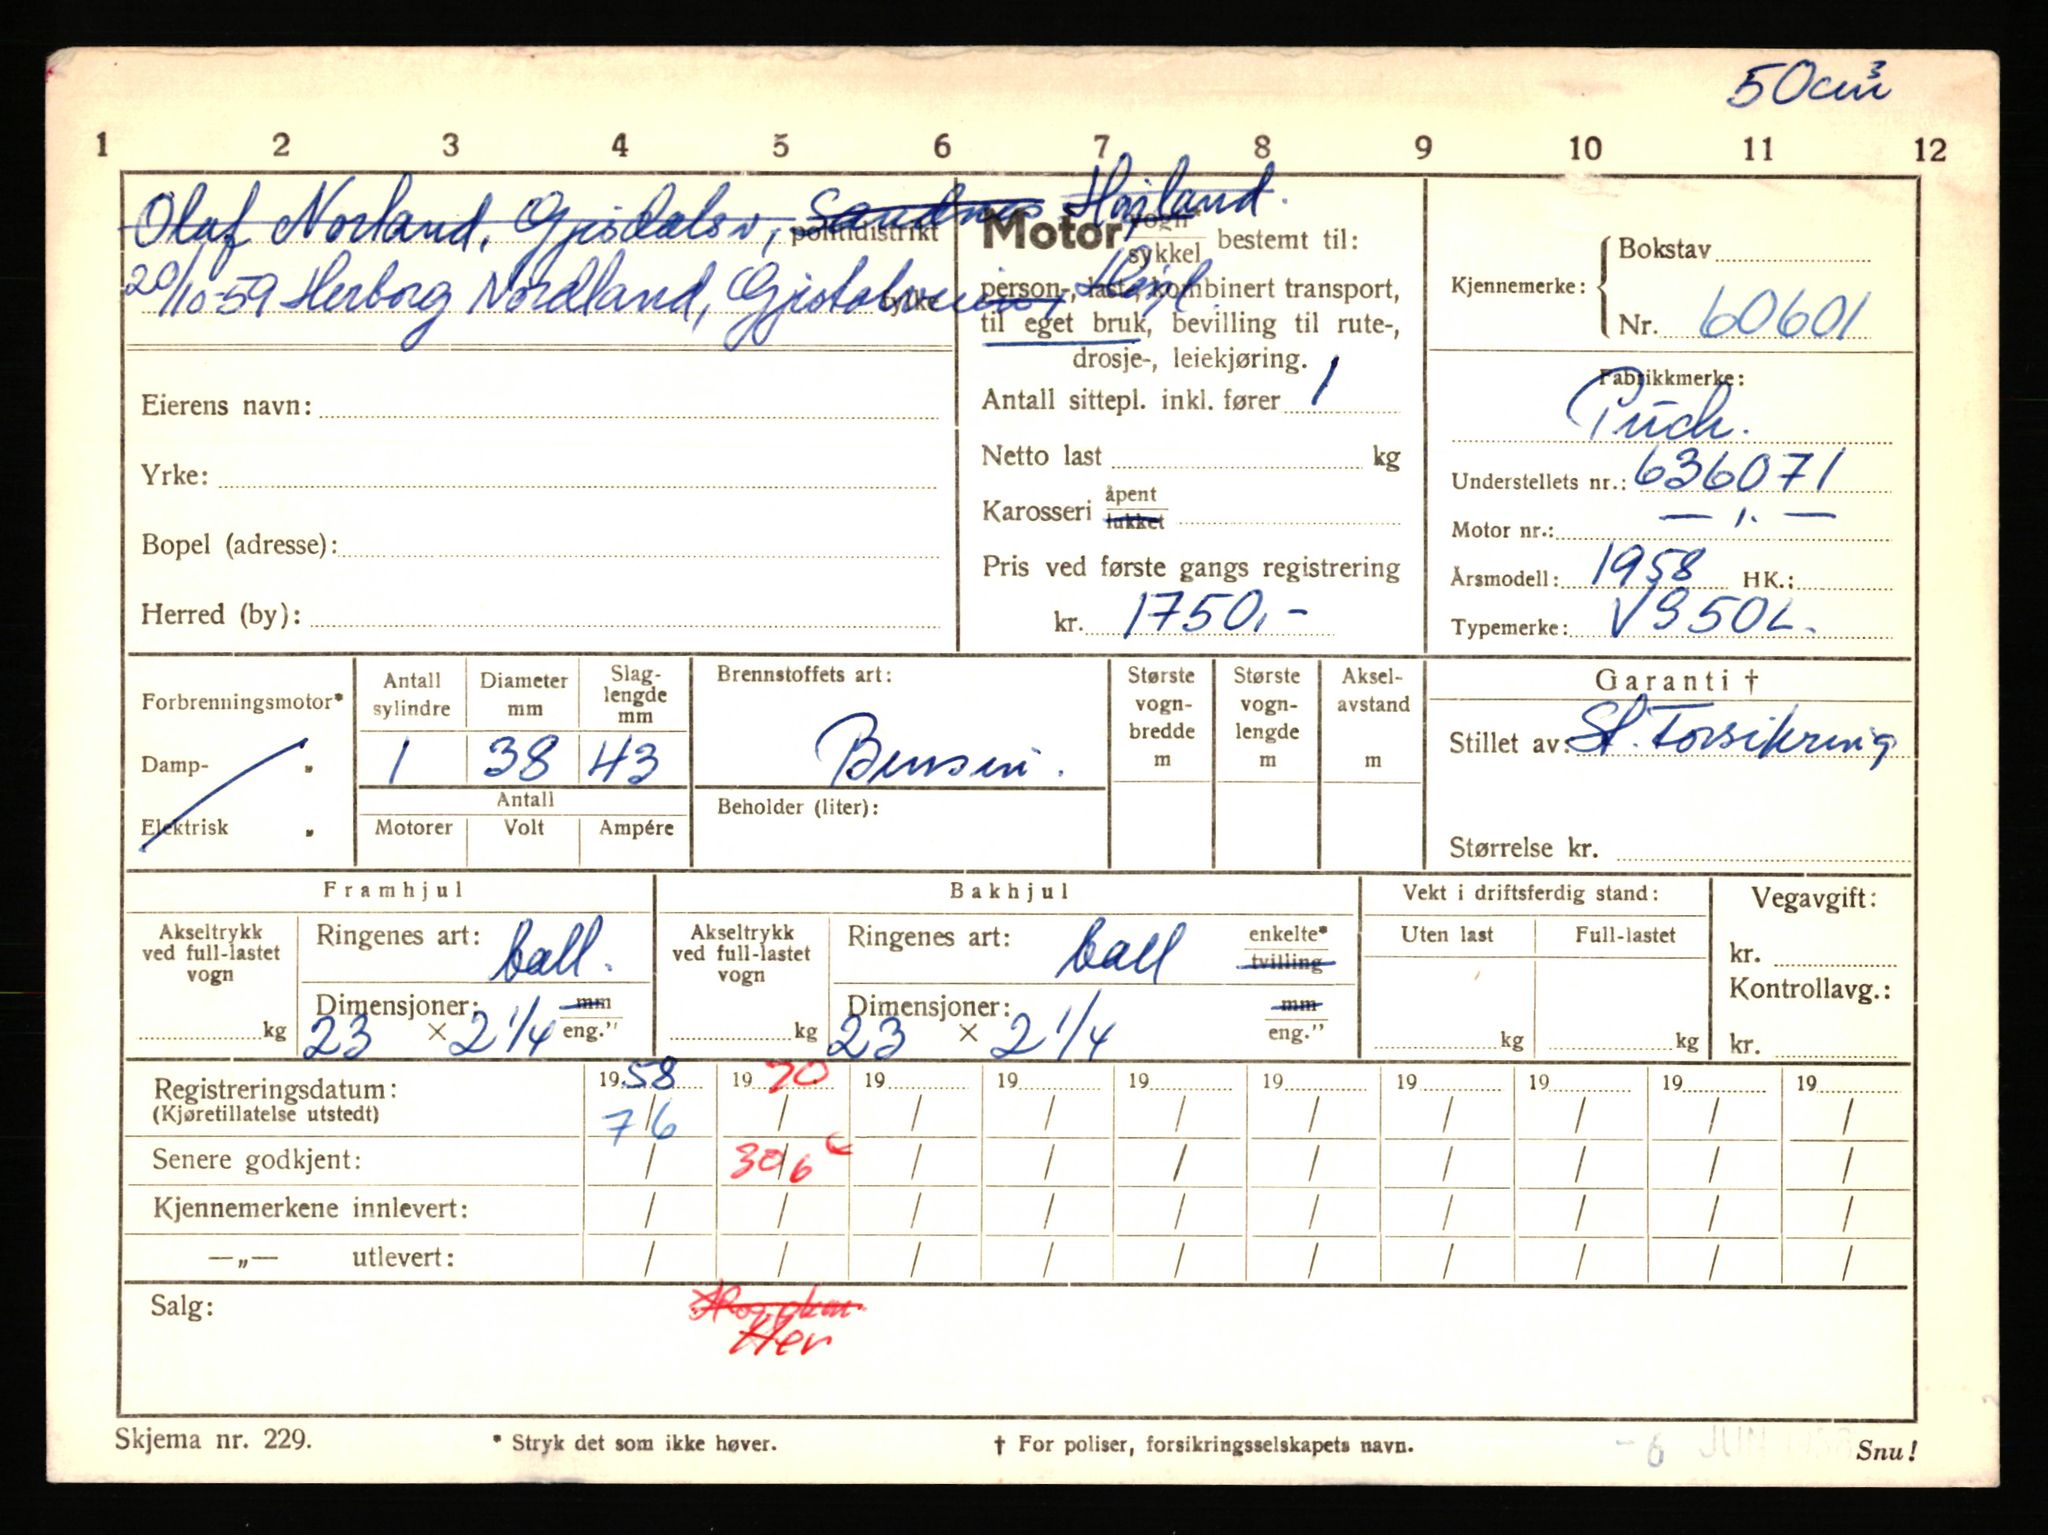 50 cm³
1 2 3 4 5 6 7 8 9 10 11 12
Olaf Norland, Gjesdalsv, Sandnes Høiland.
politidistrikt
20/10-59 Herborg Nordland,
fylke
Eierens navn:
Yrke:
Bopel (adresse):
Herred (by):
Motor vogn* sykkel bestemt til:
person-, last-, kombinert transport,
til eget bruk, bevilling til rute-,
drosje-, leiekjøring.
Antall sittepl. inkl. fører 1
Netto last kg
Karosseri åpent lukket
Pris ved første gangs registrering
kr. 1750,-
Kjennemerke: Bokstav
Nr. 60601
Fabrikkmerke:
Puch.
Understellets nr.: 636071
Motor nr.: — „ —
Årsmodell: 1958 HK.:
Typemerke: VS50L.
Forbrenningsmotor*
Damp- „
Elektrisk „
Antall sylindre
Diameter mm
Slaglengde mm
1 38 43
Antall
Motorer Volt Ampére
Brennstoffets art:
Bensin.
Beholder (liter):
Største vognbredde m
Største vognlengde m
Akselavstand m
Garanti †
Stillet av: St. Forsikring
Størrelse kr.
Framhjul
Akseltrykk ved full-lastet vogn
kg
Ringenes art: ball.
Dimensjoner: mm
23 × 2 1/4 eng."
Bakhjul
Akseltrykk ved full-lastet vogn
kg
Ringenes art: ball enkelte* tvilling
Dimensjoner: mm
23 × 2 1/4 eng."
Vekt i driftsferdig stand:
Uten last Full-lastet
kg kg
Vegavgift:
kr.
Kontrollavg.:
kr.
Registreringsdatum: 1958 1970 19 19 19 19 19 19 19 19
(Kjøretillatelse utstedt) 7/6 / / / / / / / / /
Senere godkjent: / 30/6 / / / / / / / /
Kjennemerkene innlevert: / / / / / / / / / /
—„— utlevert: / / / / / / / / / /
Salg:
Her
Skjema nr. 229.
* Stryk det som ikke høver.
† For poliser, forsikringsselskapets navn.
-6 JUN 1958
Snu!